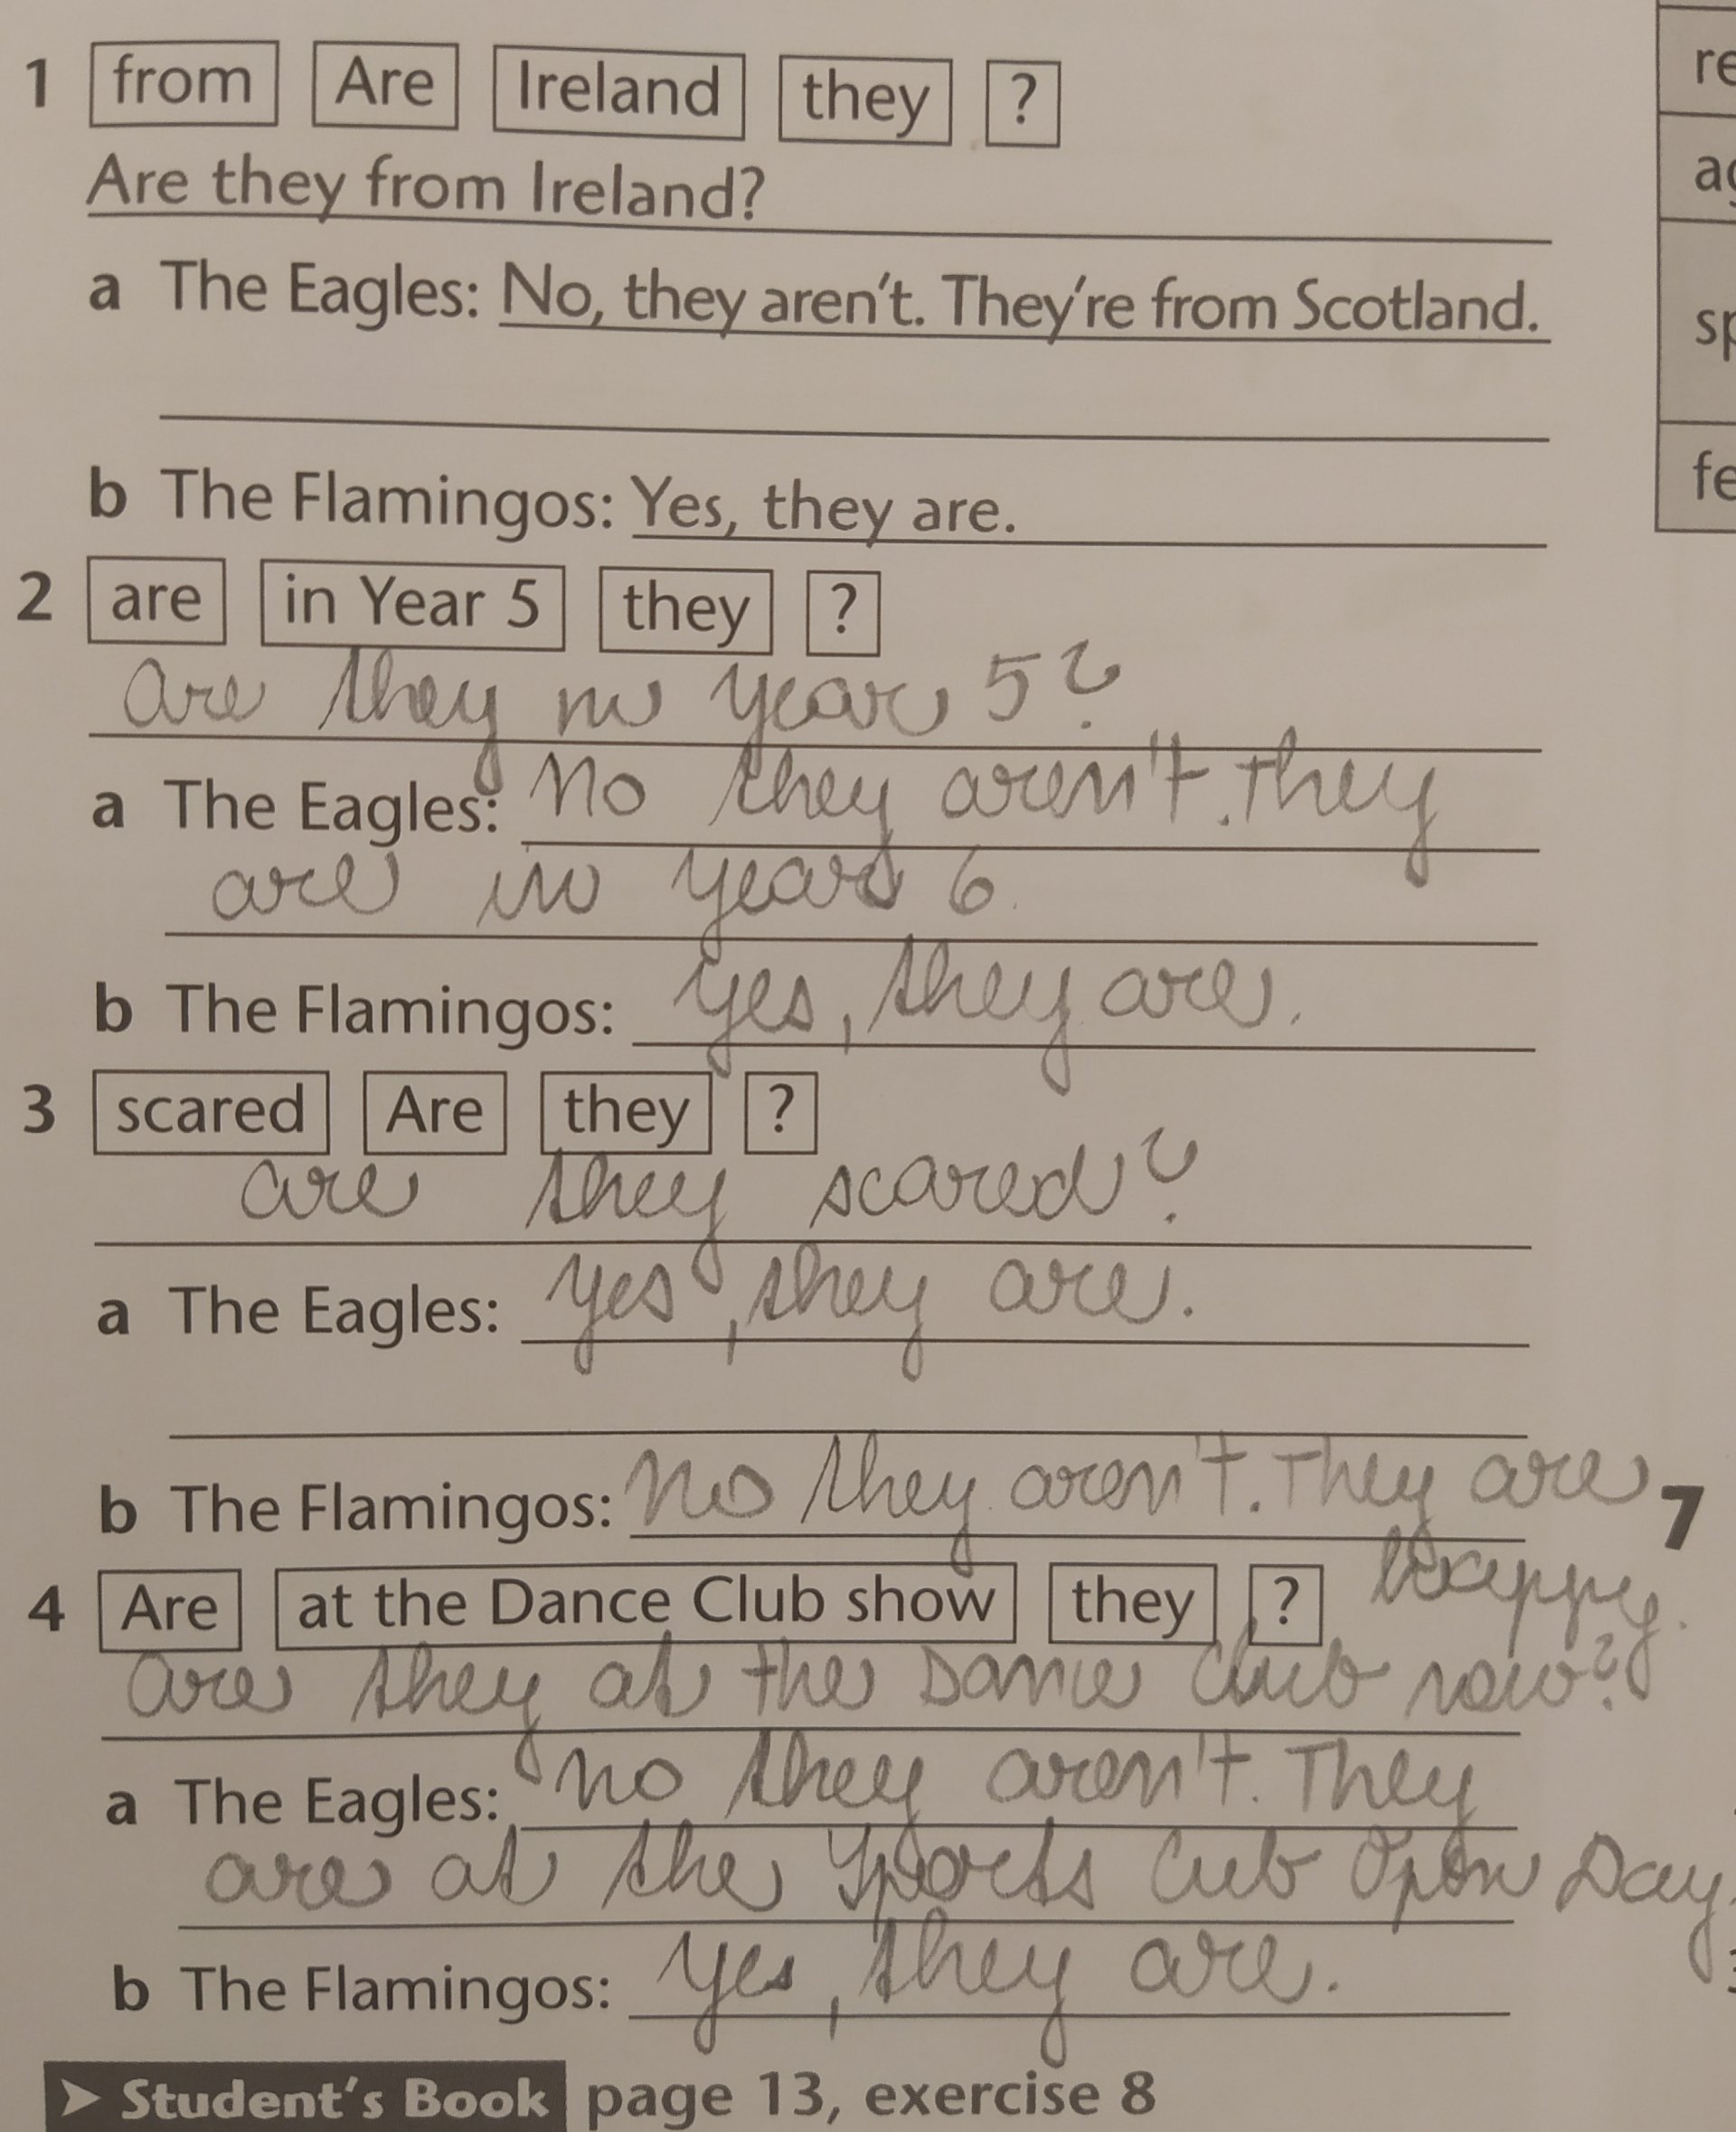 1 from Are Ireland they ?
Are they from Ireland?
a The Eagles: No, they aren't. They're from Scotland.
b The Flamingos: Yes, they are.
2 are in Year 5 they ?
are they in year 5?
a The Eagles: No they aren't. they
are in year 6.
b The Flamingos: yes, they are.
3 scared Are they ?
are they scared?
a The Eagles: yes, they are.
b The Flamingos: No they aren't. They are
happy.
7
4 Are at the Dance Club show they ?
are they at the Dance Club
a The Eagles: no they aren't. They
are at the Sports Cub Open Day
b The Flamingos: yes, they are.
➤ Student's Book page 13, exercise 8
re
ag
sp
fe